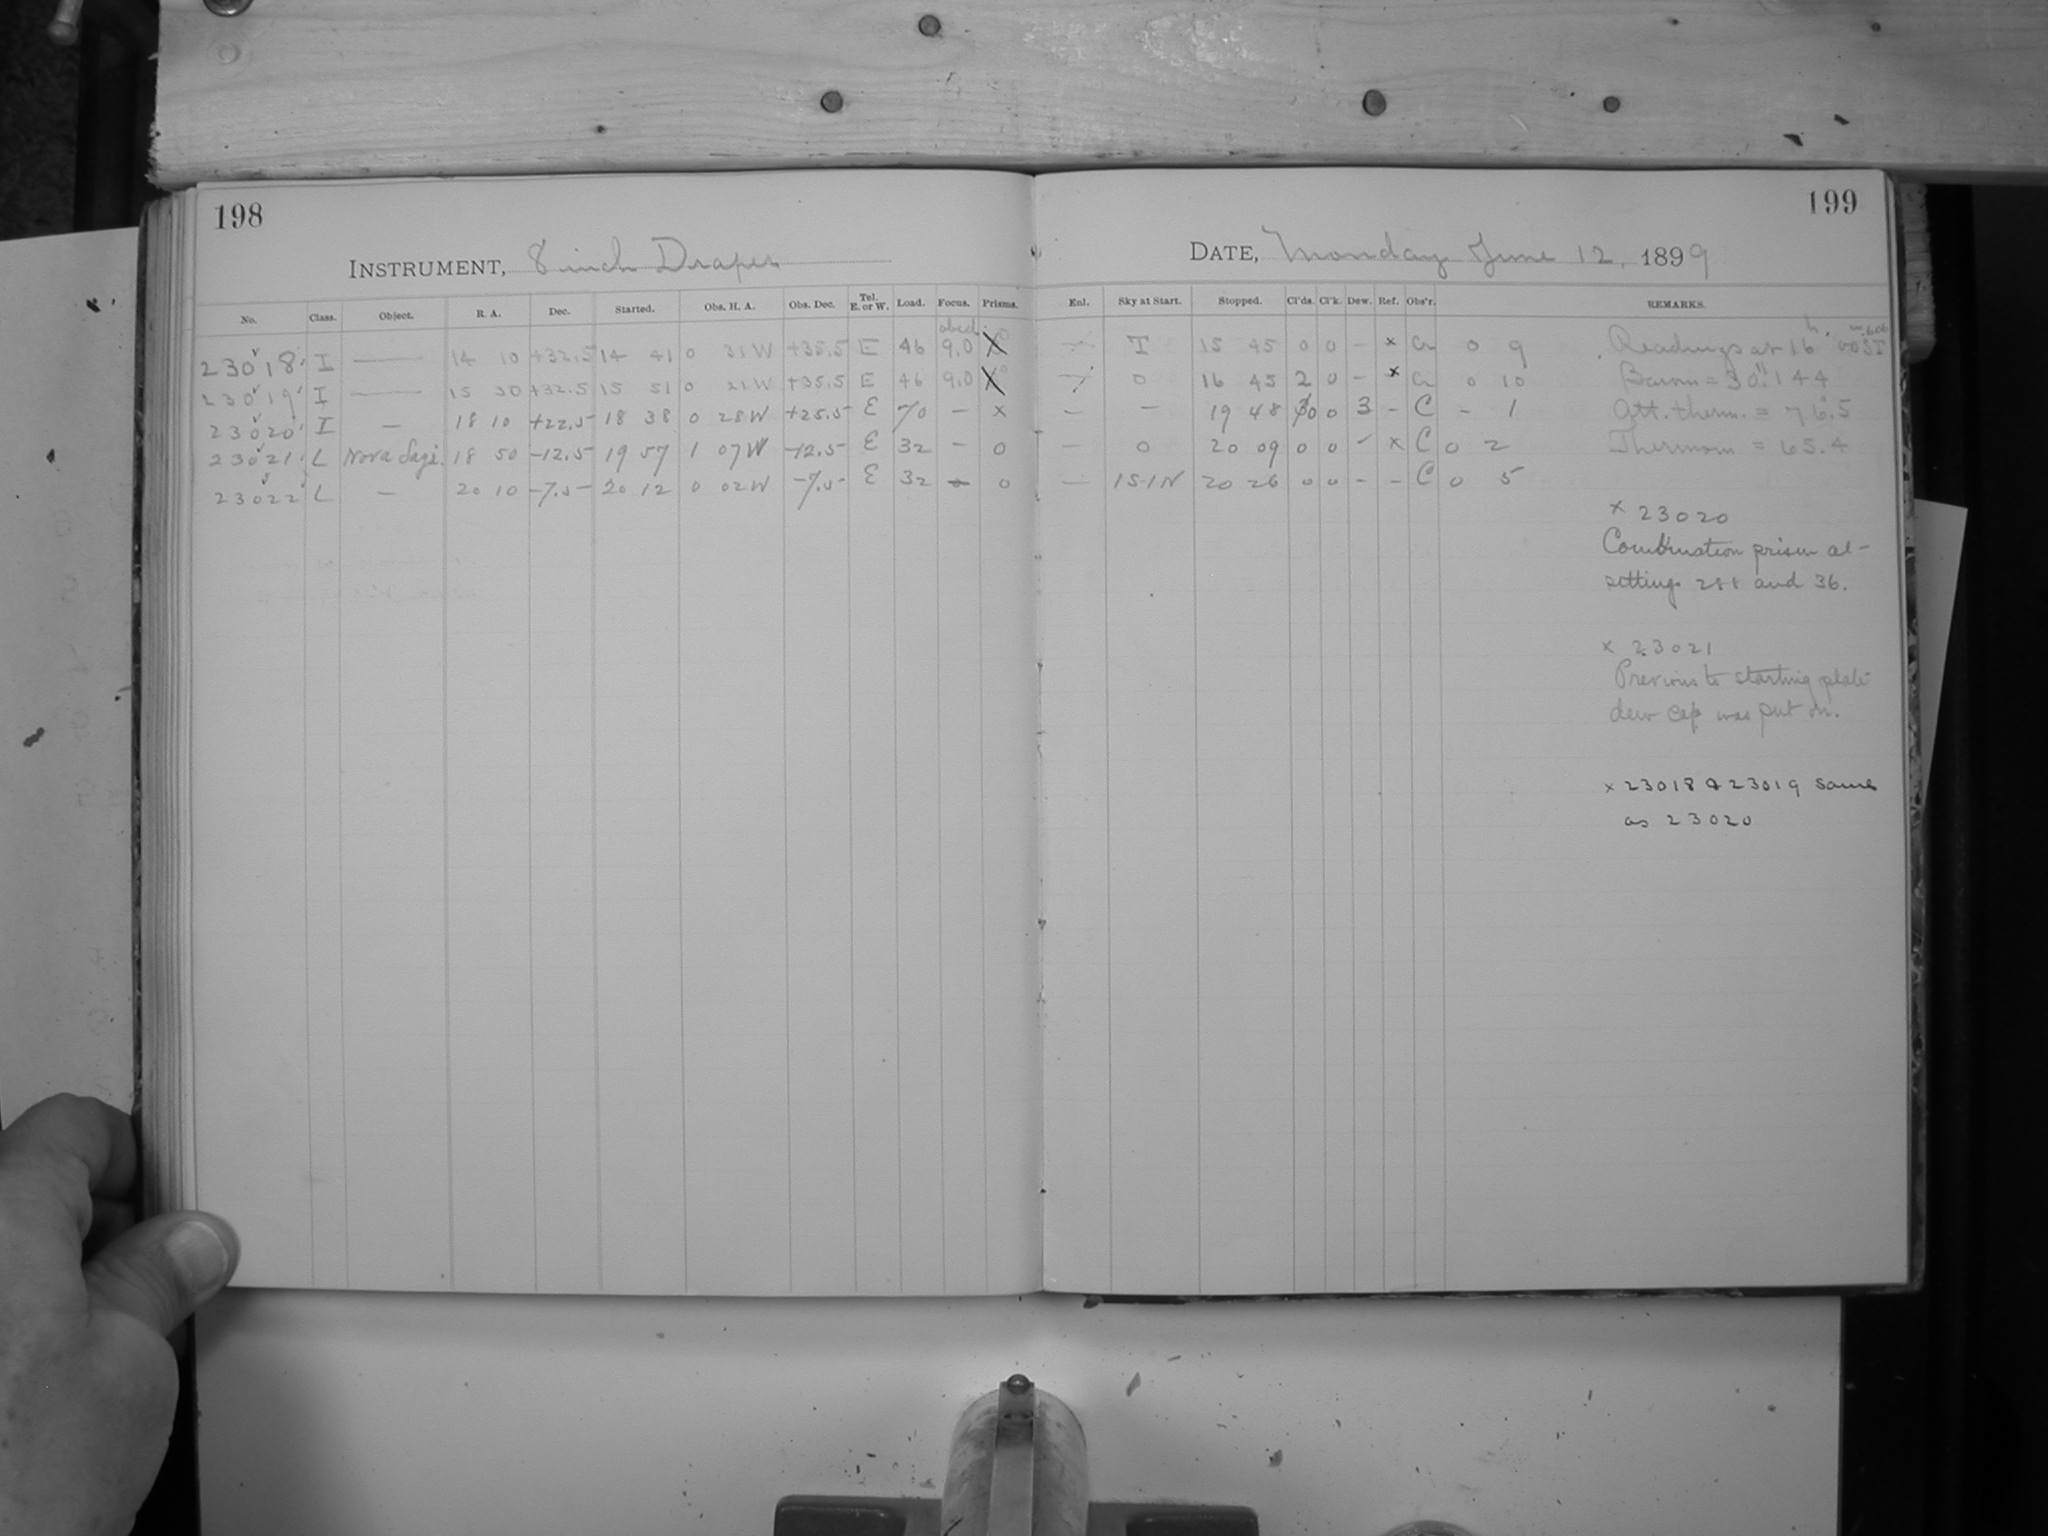 198
199
INSTRUMENT, 8 inch Draper
DATE, Monday June 12, 1899
No. Class. Object. R. A. Dec. Started. Obs. H. A. Obs. Dec. Tel. E. or W. Load. Focus. Prisms. Enl. Sky at Start. Stopped. Cl'ds. Cl'k. Dew. Ref. Obs'r. REMARKS.
23018 I — 14 10 +32.5 14 41 0 31 W +35.5 E 46 9.0 X — I 15 45 0 0 - x Cr 0 9 Readings at 16
23019 I — 15 30 +32.5 15 51 0 21 W +35.5 E 46 9.0 X — 0 16 45 2 0 - x Cr 0 10 Barom = 30.144
23020 I — 18 10 +22.5 18 38 0 28 W +25.5 E 70 - x — — 19 48 0 0 3 - C - 1 Att. therm. = 76.5
23021 L Nova Sagi. 18 50 -12.5 19 57 1 07 W -12.5 E 32 - 0 — 0 20 09 0 0 ✓ x C 0 2 Thermom = 65.4
23022 L — 20 10 -7.5 20 12 0 02 W -7.5 E 32 - 0 — 1S-1N 20 26 0 0 - - C 0 5
x 23020
Combination prism at
setting 288 and 36.
x 23021
Previous to starting plate
dew cap was put on.
x 23018 & 23019 same
as 23020